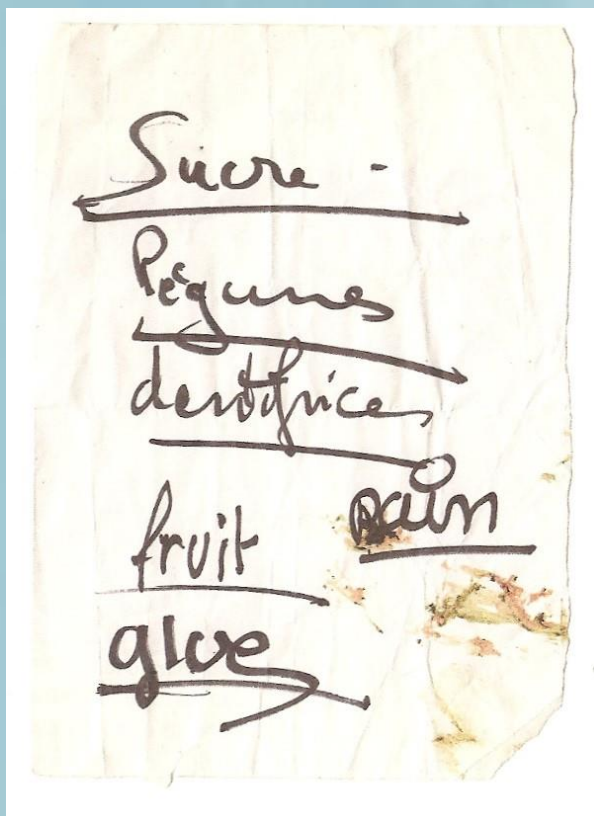 Sucre -
Légumes
dentifrices
pain
fruit
glue